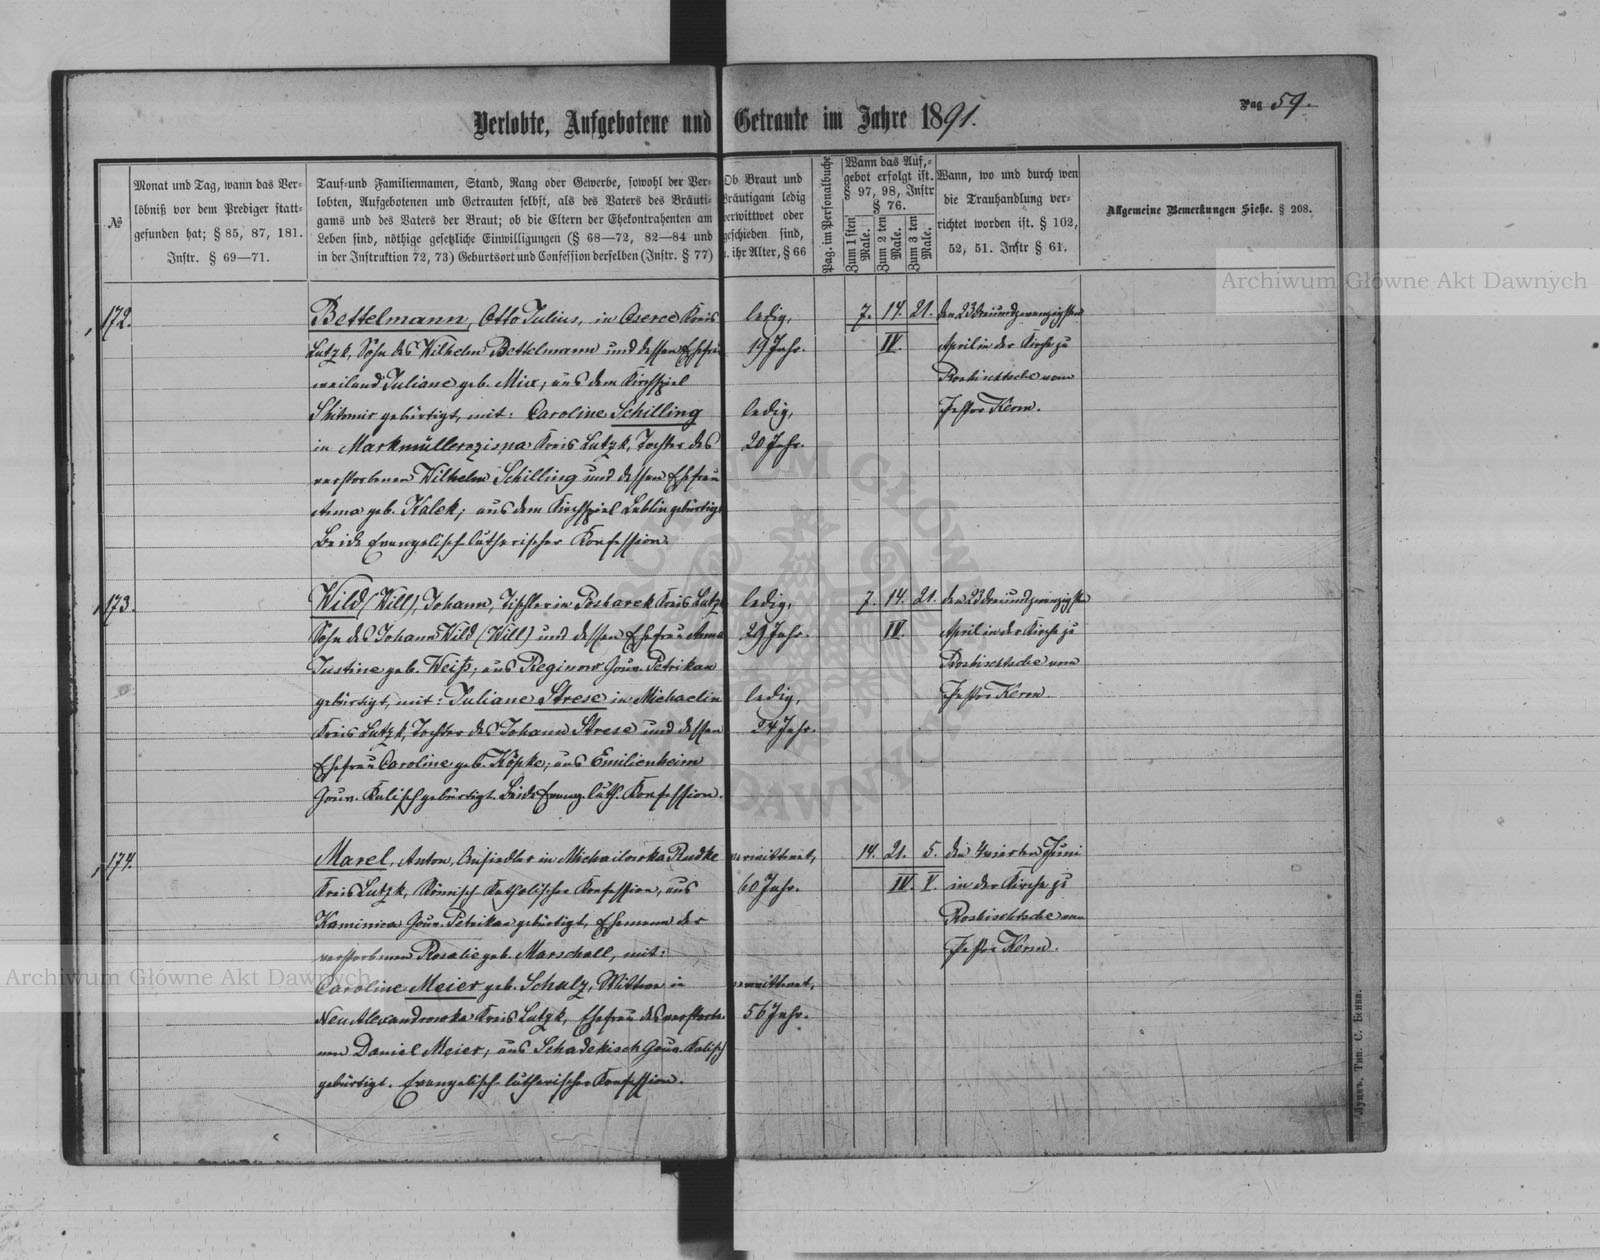 Pag 59.
Verlobte, Aufgebotene und Getraute im Jahre 1891.
№
Monat und Tag, wann das Ver-
löbniß vor dem Prediger statt-
gefunden hat; § 85, 87, 181.
Instr. § 69—71.
Tauf-und Familiennamen, Stand, Rang oder Gewerbe, sowohl der Ver-
lobten, Aufgebotenen und Getrauten selbst, als des Vaters des Bräuti-
gams und des Vaters der Braut; ob die Eltern der Ehekontrahenten am
Leben sind, nöthige gesetzliche Einwilligungen (§ 68—72, 82—84 und
in der Instruktion 72, 73) Geburtsort und Confession derselben (Instr. § 77)
Ob Braut und
Bräutigam ledig
verwittwet oder
geschieden sind,
u. ihr Alter, § 66
Pag. im Personalbuche
Wann das Auf,-
gebot erfolgt ist.
§ 97, 98, Instr
§ 76.
Zum 1sten Male.
Zum 2 ten Male.
Zum 3 ten Male.
Wann, wo und durch wen
die Trauhandlung ver-
richtet worden ist. § 102,
52, 51. Instr § 61.
Allgemeine Bemerkungen Siehe. § 208.
172.
Bettelmann, Otto Julius, in Oserce Kreis
Lutzk, Sohn des Wilhelm Bettelmann und dessen Ehefrau
weiland Juliane geb. Mix; aus dem Kirchspiel
Shitomir gebürtigt, mit: Caroline Schilling
in Markmüllerezisna Kreis Lutzk, Tochter des
verstorbenen Wilhelm Schilling und dessen Ehefrau
Anna geb. Kalek; aus dem Kirchspiel Lublin gebürtigt
Beide Evangelisch-lutherischer Konfession.
ledig,
19 Jahr.
ledig,
20 Jahr.
7. 14. 21.
IV.
den 23 dreiundzwanzigsten
April in der Kirche zu
Roshischtsche vom
Pastor Kerm.
173.
Wild (Will), Johann, Tischler in Posharek Kreis Lutzk
Sohn des Johann Wild (Will) und dessen Ehefrau Anna
Justine geb. Weiß; aus Reginow Gouv. Petrikau
gebürtigt, mit: Juliane Strese in Michaelin
Kreis Lutzk, Tochter des Johann Strese und dessen
Ehefrau Caroline geb. Köpke; aus Emilienheim
Gouv. Kalisch gebürtigt. Beide Evang. luth. Konfession.
ledig,
29 Jahr.
ledig,
24 Jahr.
7. 14. 21.
IV.
den 23 dreiundzwanzigsten
April in der Kirche zu
Roshischtsche vom
Pastor Kerm
174.
Marel, Anton, Ansiedler in Michailowka Rudke
Kreis Lutzk, Römisch-Katholischer Konfession, aus
Kaminica Gouv. Petrikau gebürtigt, Ehemann der
verstorbenen Rosalie geb. Marschall, mit:
Caroline Meier geb. Schulz, Wittwe in
Neu Alexandrowka Kreis Lutzk, Ehefrau des verstorbe-
nen Daniel Meier; aus Schadekisch Gouv. Kalisch
gebürtigt. Evangelisch-lutherischer Konfession.
verwittwet,
60 Jahr.
verwittwet,
56 Jahr.
14. 21. 5.
IV. V.
den 4 vierten Juni
in der Kirche zu
Roshischtsche vom
Pastor Kerm.
Луцкъ, Тип. С. Бенка.
Archiwum Główne Akt Dawnych
Archiwum Główne Akt Dawnych